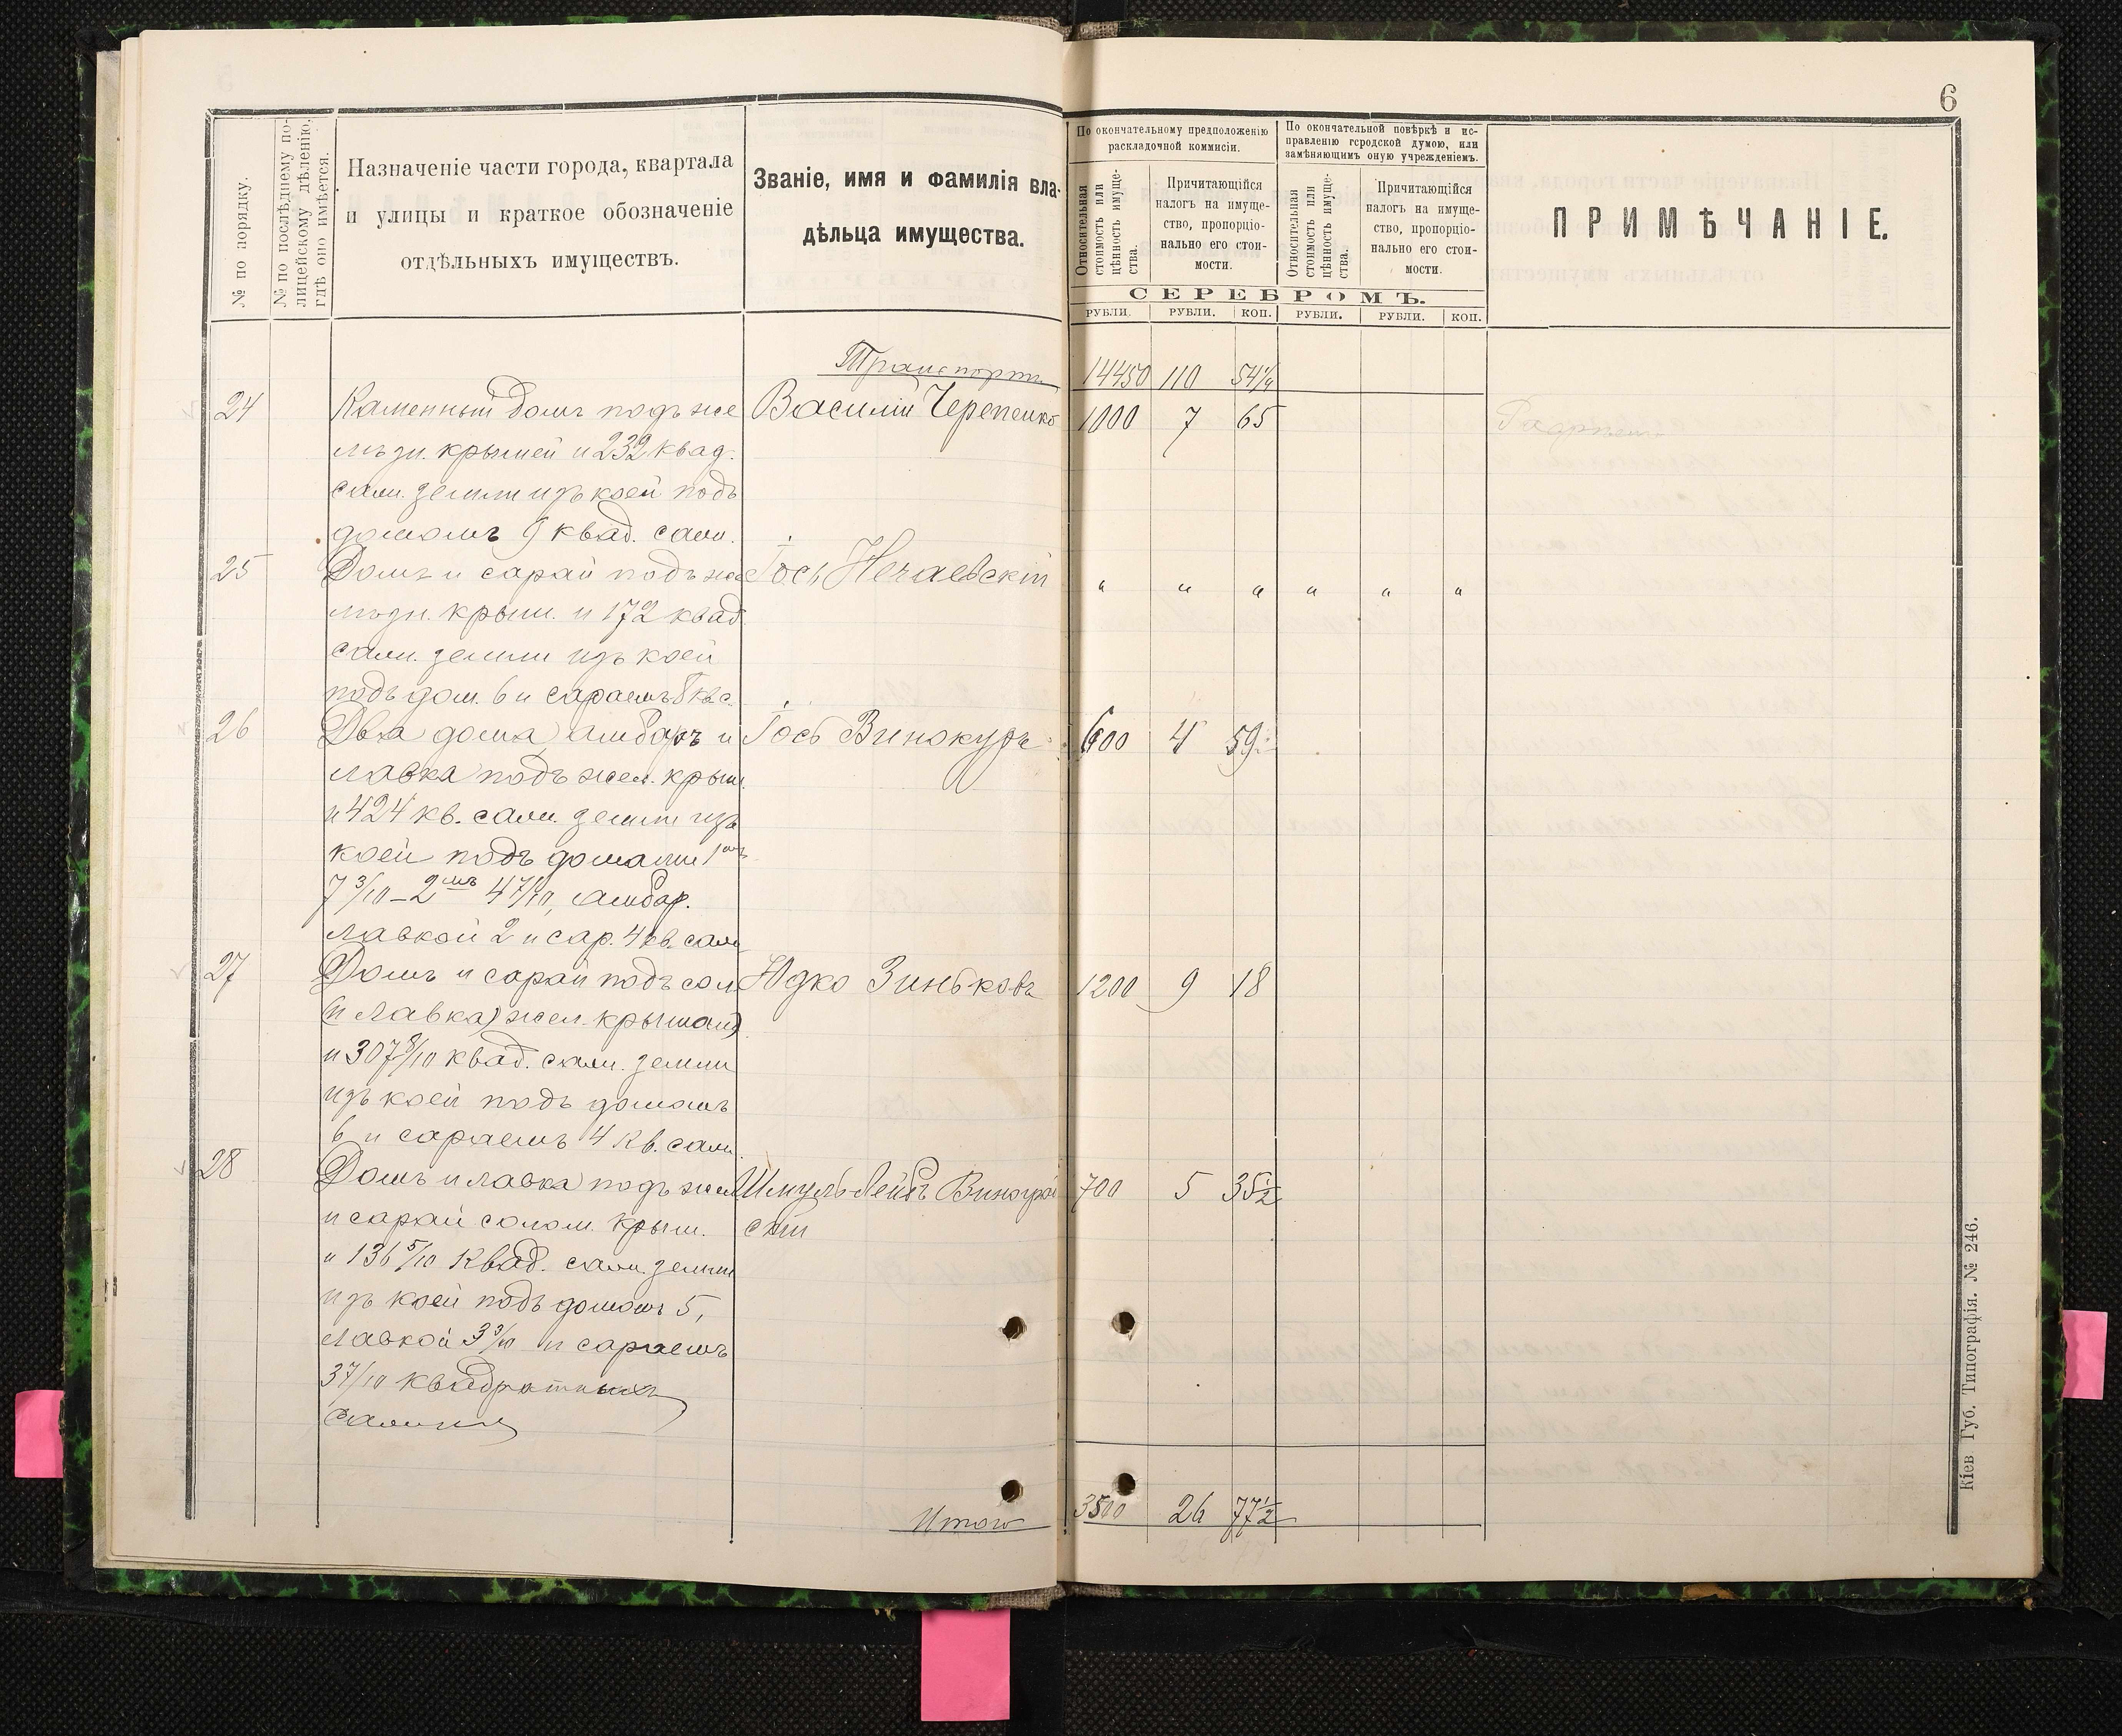 6
№ по порядку.
№ по послѣднему по-
лицейскому дѣленію,
гдѣ оно имѣется.
Назначеніе части города, квартала
и улицы и краткое обозначеніе
отдѣльныхъ имуществъ.
Званіе, имя и фамилія вла-
дѣльца имущества.
По окончательному предположенію
раскладочной коммисіи.
По окончательной повѣркѣ и ис-
правленію городской думою, или
замѣняющимъ оную учрежденіемъ.
Относительная
стоимость или
цѣнность имуще-
ства.
Причитающійся
налогъ на имуще-
ство, пропорціо-
нально его стои-
мости.
Относительная
стоимость или
цѣнность имуще-
ства.
Причитающійся
налогъ на имуще-
ство, пропорціо-
нально его стои-
мости.
ПРИМѢЧАНІЕ.
СЕРЕБРОМЪ.
РУБЛИ. РУБЛИ. КОП. РУБЛИ. РУБЛИ. КОП.
Транспортъ 14450 110 54 1/4
24 Каменный домъ подъ же Василій Черепенко 1000 7 65
лѣзн. крышей и 232 квад.
саж. земли изъ коей подъ
домомъ 9 квад. саж.
25 Домъ и сарай подъ же Іось Нечаевскій " " " " " "
лѣзн. крыш. и 172 квад
саж. земли изъ коей
подъ дом. 6 и сараемъ 8 кв с.
26 Два дома, амбаръ и Іось Винокуръ 600 4 59
лавка подъ жел. крыш.
и 424 кв. саж. земли изъ
коей подъ домами 1мъ
7 3/10 – 2мъ 4 7/10, амбар.
лавкой 2 и сар. 4 кв. саж
27 Домъ и сарай подъ сол Юдко Зиньковъ 1200 9 18
(и лавка) жел. крышай
и 307 8/10 квад. саж. земли
изъ коей подъ домомъ
6 и сараемъ 4 кв. саж.
28 Домъ и лавка подъ жел Шмуль-Лейбъ Виноград 700 5 35 1/2
и сарай солом. крыш. скій
и 136 5/10 квад. саж. земли
изъ коей подъ домомъ 5,
лавкой 3 3/10 и сараемъ
3 7/10 квадратныхъ
сажени
Итого 3500 26 77 1/2
Кіев Губ. Типографія. № 246.